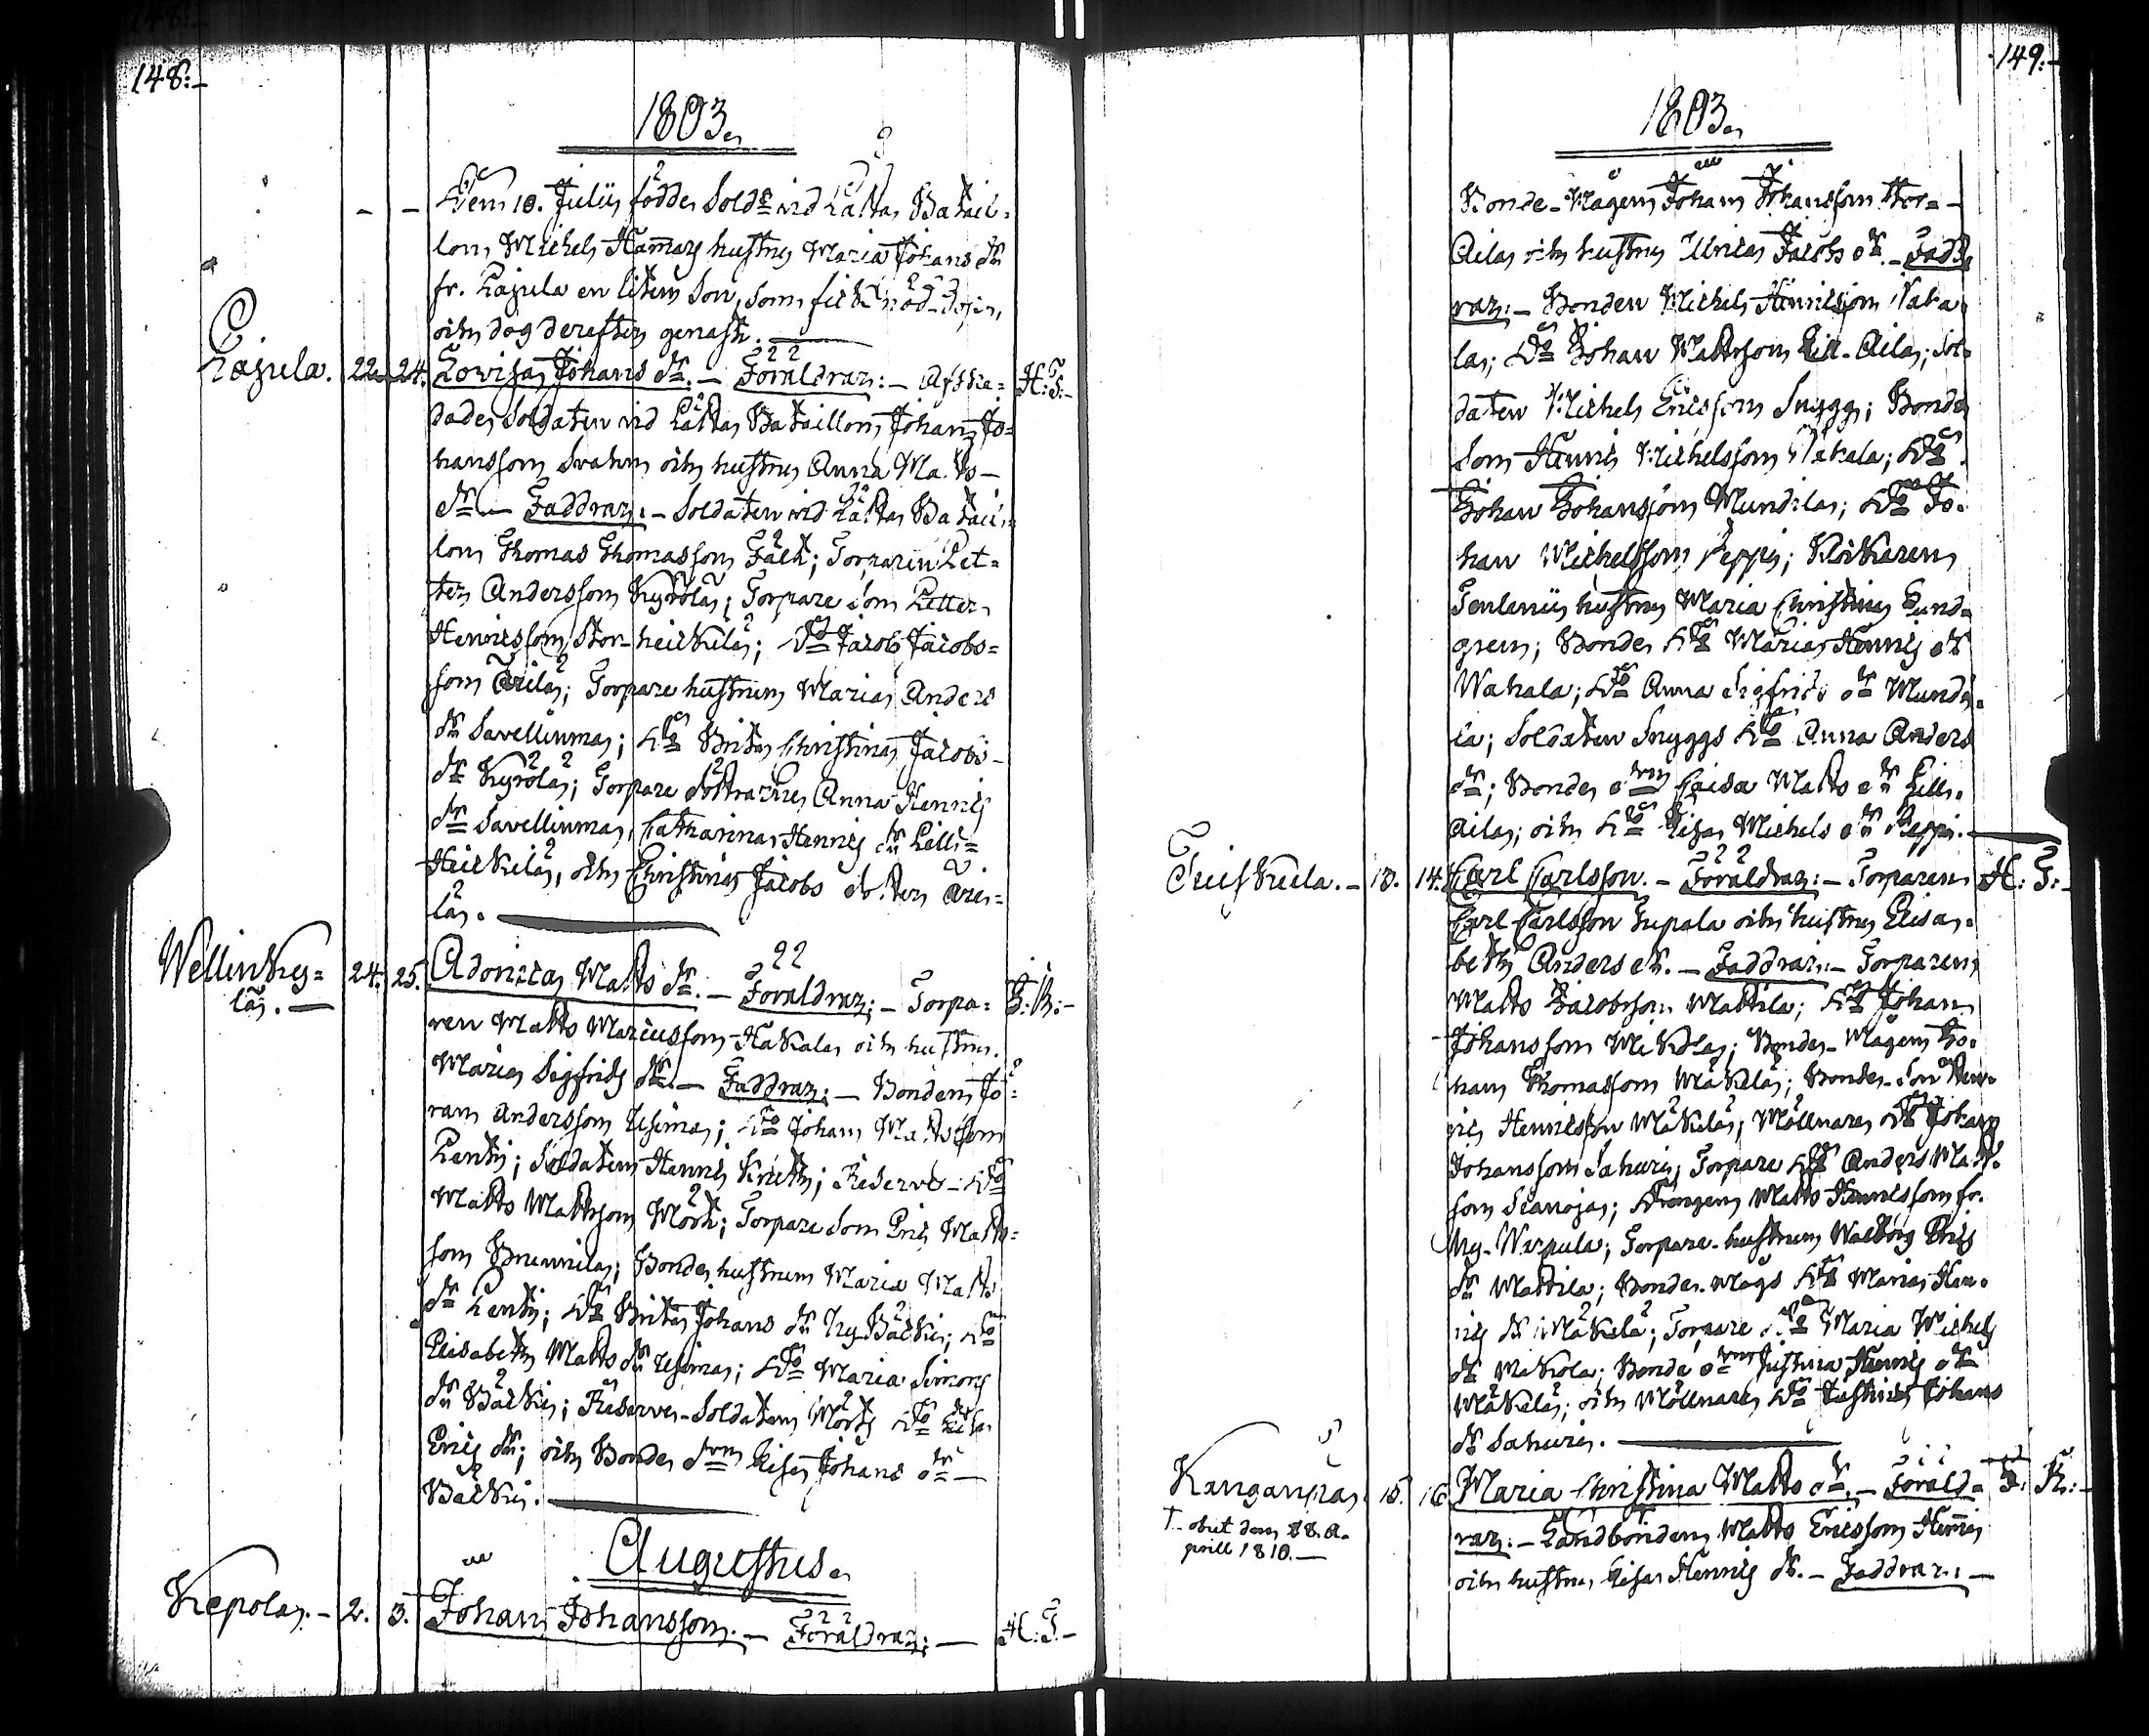 148:-
1803.
Den 10. Julii födde Sold: vid Lätta Batail-
lon Michel Hammars hustru Maria Johans dr
fr. Lajula en liten Son, som fick nöd-Dop,
och dog derefter genast.
Lajula. 22. 24. Lovisa Johans dr. - Föräldrar: - Afska- H: T:-
dade Soldaten vid Lätta Bataillon Johan Jo-
hansson Svahn och hustru Anna Matts
dr. - Faddrar: - Soldaten vid Lätta Batail-
lon Thomas Thomasson Fälth; Torparen Pet-
ter Andersson Kyrölä; Torpare Son Petter
Henricsson Stor-heickilä; Do Jacob Jacobs-
son Arilä; Torpare hustrun Maria Anders
dr Savellinma; Do Brita Christina Jacobs
dr Kyrölä; Torpare döttrarne Anna Henrics
dr Savellinma, Catharina Henrics dr Lilli-
Heickilä, och Christina Jacobs dotter Ari-
lä.
Wellinky-
lä. 24. 25. Adonica Matts dr. - Föräldrar: - Torpa-
ren Matts Marcusson Hakala och hustru
Maria Sigfrids dr. - Faddrar: - Bonden Jö-
ran Andersson Uhima; Do Johan Mattsson
Pentti; Soldaten Henric Knekt; Reserve-Do
Matts Mattsson Mört; Torpare Son Eric Matts-
son Brunnila; Bonde hustrun Maria Matts
dr Pentti; Do Brita Johans dr Ny Bäcki; Do
Elisabeth Matts dr Uhima; Do Maria Simons
dr Bäcki; Reserve-Soldaten Mörts Do Lisa
Erics dr; och Bonde drn Lisa Johans dr
Bäcki.
Augustus.
Kepola. - 2. 3. Johan Johansson. - Föräldrar: - H: T:-
149:-
1803.
Bonde-Mågen Johan Johansson Stor-
Aila och hustru Ulrica Jacobs dr. - Fadd-
rar: - Bonden Michel Henricsson Waka-
la; Do Johan Mattsson Lill-Aila; Sol-
daten Michel Ericsson Snygg; Bonde
Son Henric Michelsson Wakala; Do
Johan Johansson Mundila; Do Jo-
han Michelsson Peppi; Klockaren
Tenlenii hustru Maria Christina Lund-
gren; Bonde Do Maria Henrics dr
Wakala; Do Anna Sigfrids dr Mundi-
la; Soldaten Snyggs Do Anna Anders
dr; Bonde drn Caisa Matts dr Lill-
Aila; och Do Lisa Michels dr Peppi.
13. 14. Carl Carlsson. - Föräldrar: - Torparen H: T:-
Carl Carlsson Hepala och hustru Elisa-
beth Anders dr. - Faddrar: - Torparen
Matts Jacobsson Mattila; Do Johan
Johansson Mickola; Bonde-Mågen Jo-
han Thomasson Mäkilä; Bonde-Son Hen-
ric Henricsson Mäkilä; Möllnare Do Johan
Johansson Sahuri; Torpare Do Anders Matts-
son Stanoja; Drängen Matts Henricsson fr.
Ny-Werpula; Torpare-hustrun Walborg Erics
dr Mattila; Bonde-Mågs Do Maria Hen-
rics dr Mäkilä; Torpare Do Maria Michels
dr Mackola; Bonde drn Justina Henrics dr
Mäkilä; och Möllnare Do Justina Johans
dr Sahuri.
Kanganpää 15. 16. Maria Christina Matts dr. - Föräld- J: R:-
T. obiit den 28. A-
prill 1810. -
rar: - Landbonden Matts Ericsson Henric
och hustru Lisa Henrics dr. - Faddrar: -